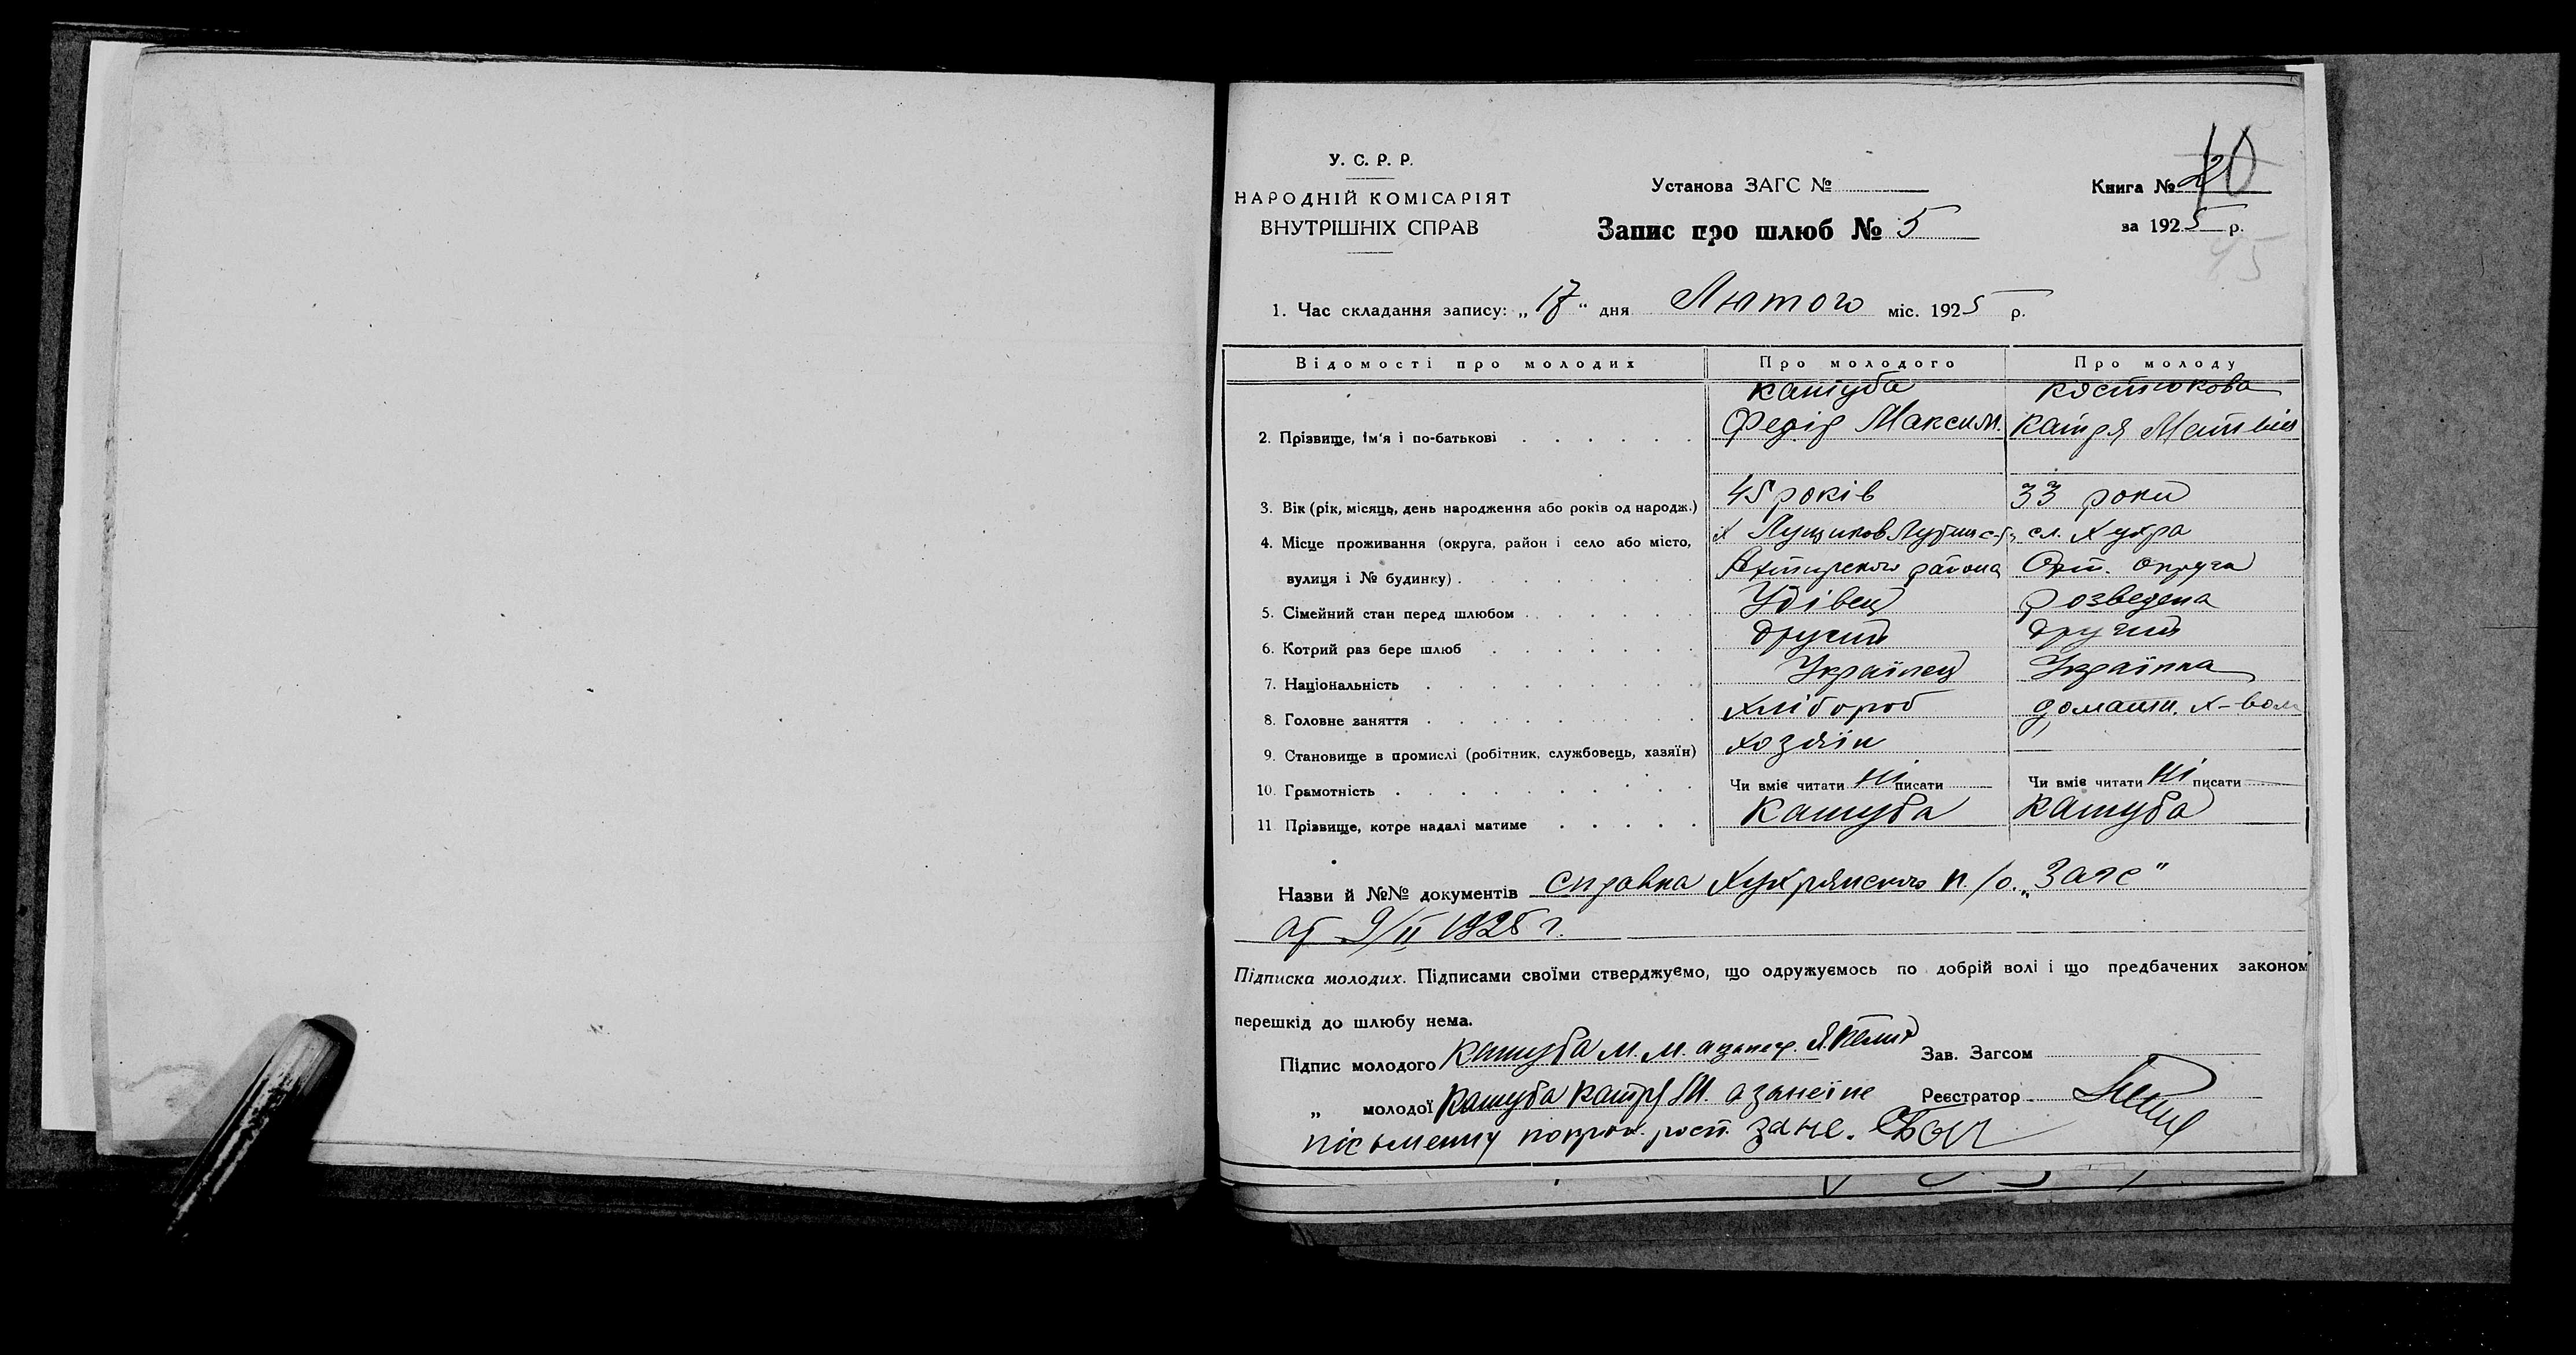 У. С. Р. Р.
НАРОДНІЙ КОМІСАРІЯТ
ВНУТРІШНІХ СПРАВ
Установа ЗАГС №
Запис про шлюб № 5
Книга №
за 1925 р.
45
1. Час складання запису: „17“ дня Лютого міс. 1925 р.
Відомості про молодих Про молодого Про молоду
Кашуба Костюкова
2. Прізвище, ім'я і по-батькові Федір Максим. Катря Матвіів
3. Вік (рік, місяць, день народження або років од народж.) 45 років 33 роки
4. Місце проживання (округа, район і село або місто, х сл. Хухра
вулиця і № будинку) Ахтирского района Охт. округа
5. Сімейний стан перед шлюбом Удівец розведена
6. Котрий раз бере шлюб другий другий
7. Національність Українец Українка
8. Головне заняття Хлібороб домашн. х-вом
9. Становище в промислі (робітник, службовець, хазяїн) хозяін —
10. Грамотність Чи вміє читати ні писати Чи вміє читати ні писати
11 Прізвище, котре надалі матиме Кашуба Кашуба
Назви й №№ документів справка Хухрянского п./о. „Загс"
од 9/II 1925 г.
Підписка молодих. Підписами своїми стверджуємо, що одружуємось по добрій волі і що предбачених законом
перешкід до шлюбу нема.
Підпис молодого Кашуба М. М. а
Зав. Загсом
„ молодої Кашуба Катр М. а за
Реєстратор
пісьменну рост.